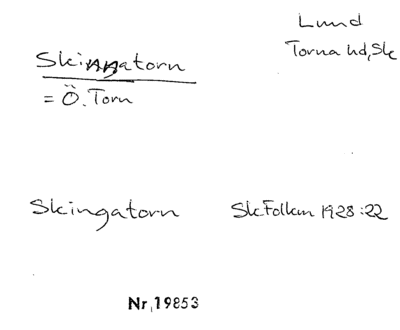 Lund
Torna hd, Sk
Skinnatorn
= Ö. Torn
Skingatorn SkFolkm 1928:22
Nr, 19853